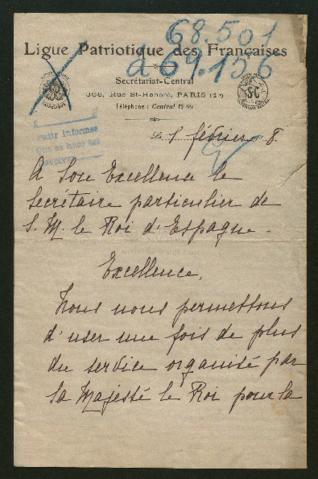 68.501
a 69.156
Ligue Patriotique des Françaises
Secrétariat-Central
368, Rue St-Honoré, PARIS (1er)
Téléphone : Central
Pedir informes
Que se hace
février 8.
A Son Excellence le
Secrétaire particulier de
S. M. le Roi d'Espagne.
Excellence,
Nous nous permettons
d'user une fois de plus
du service organisé par
sa Majesté le Roi pour la